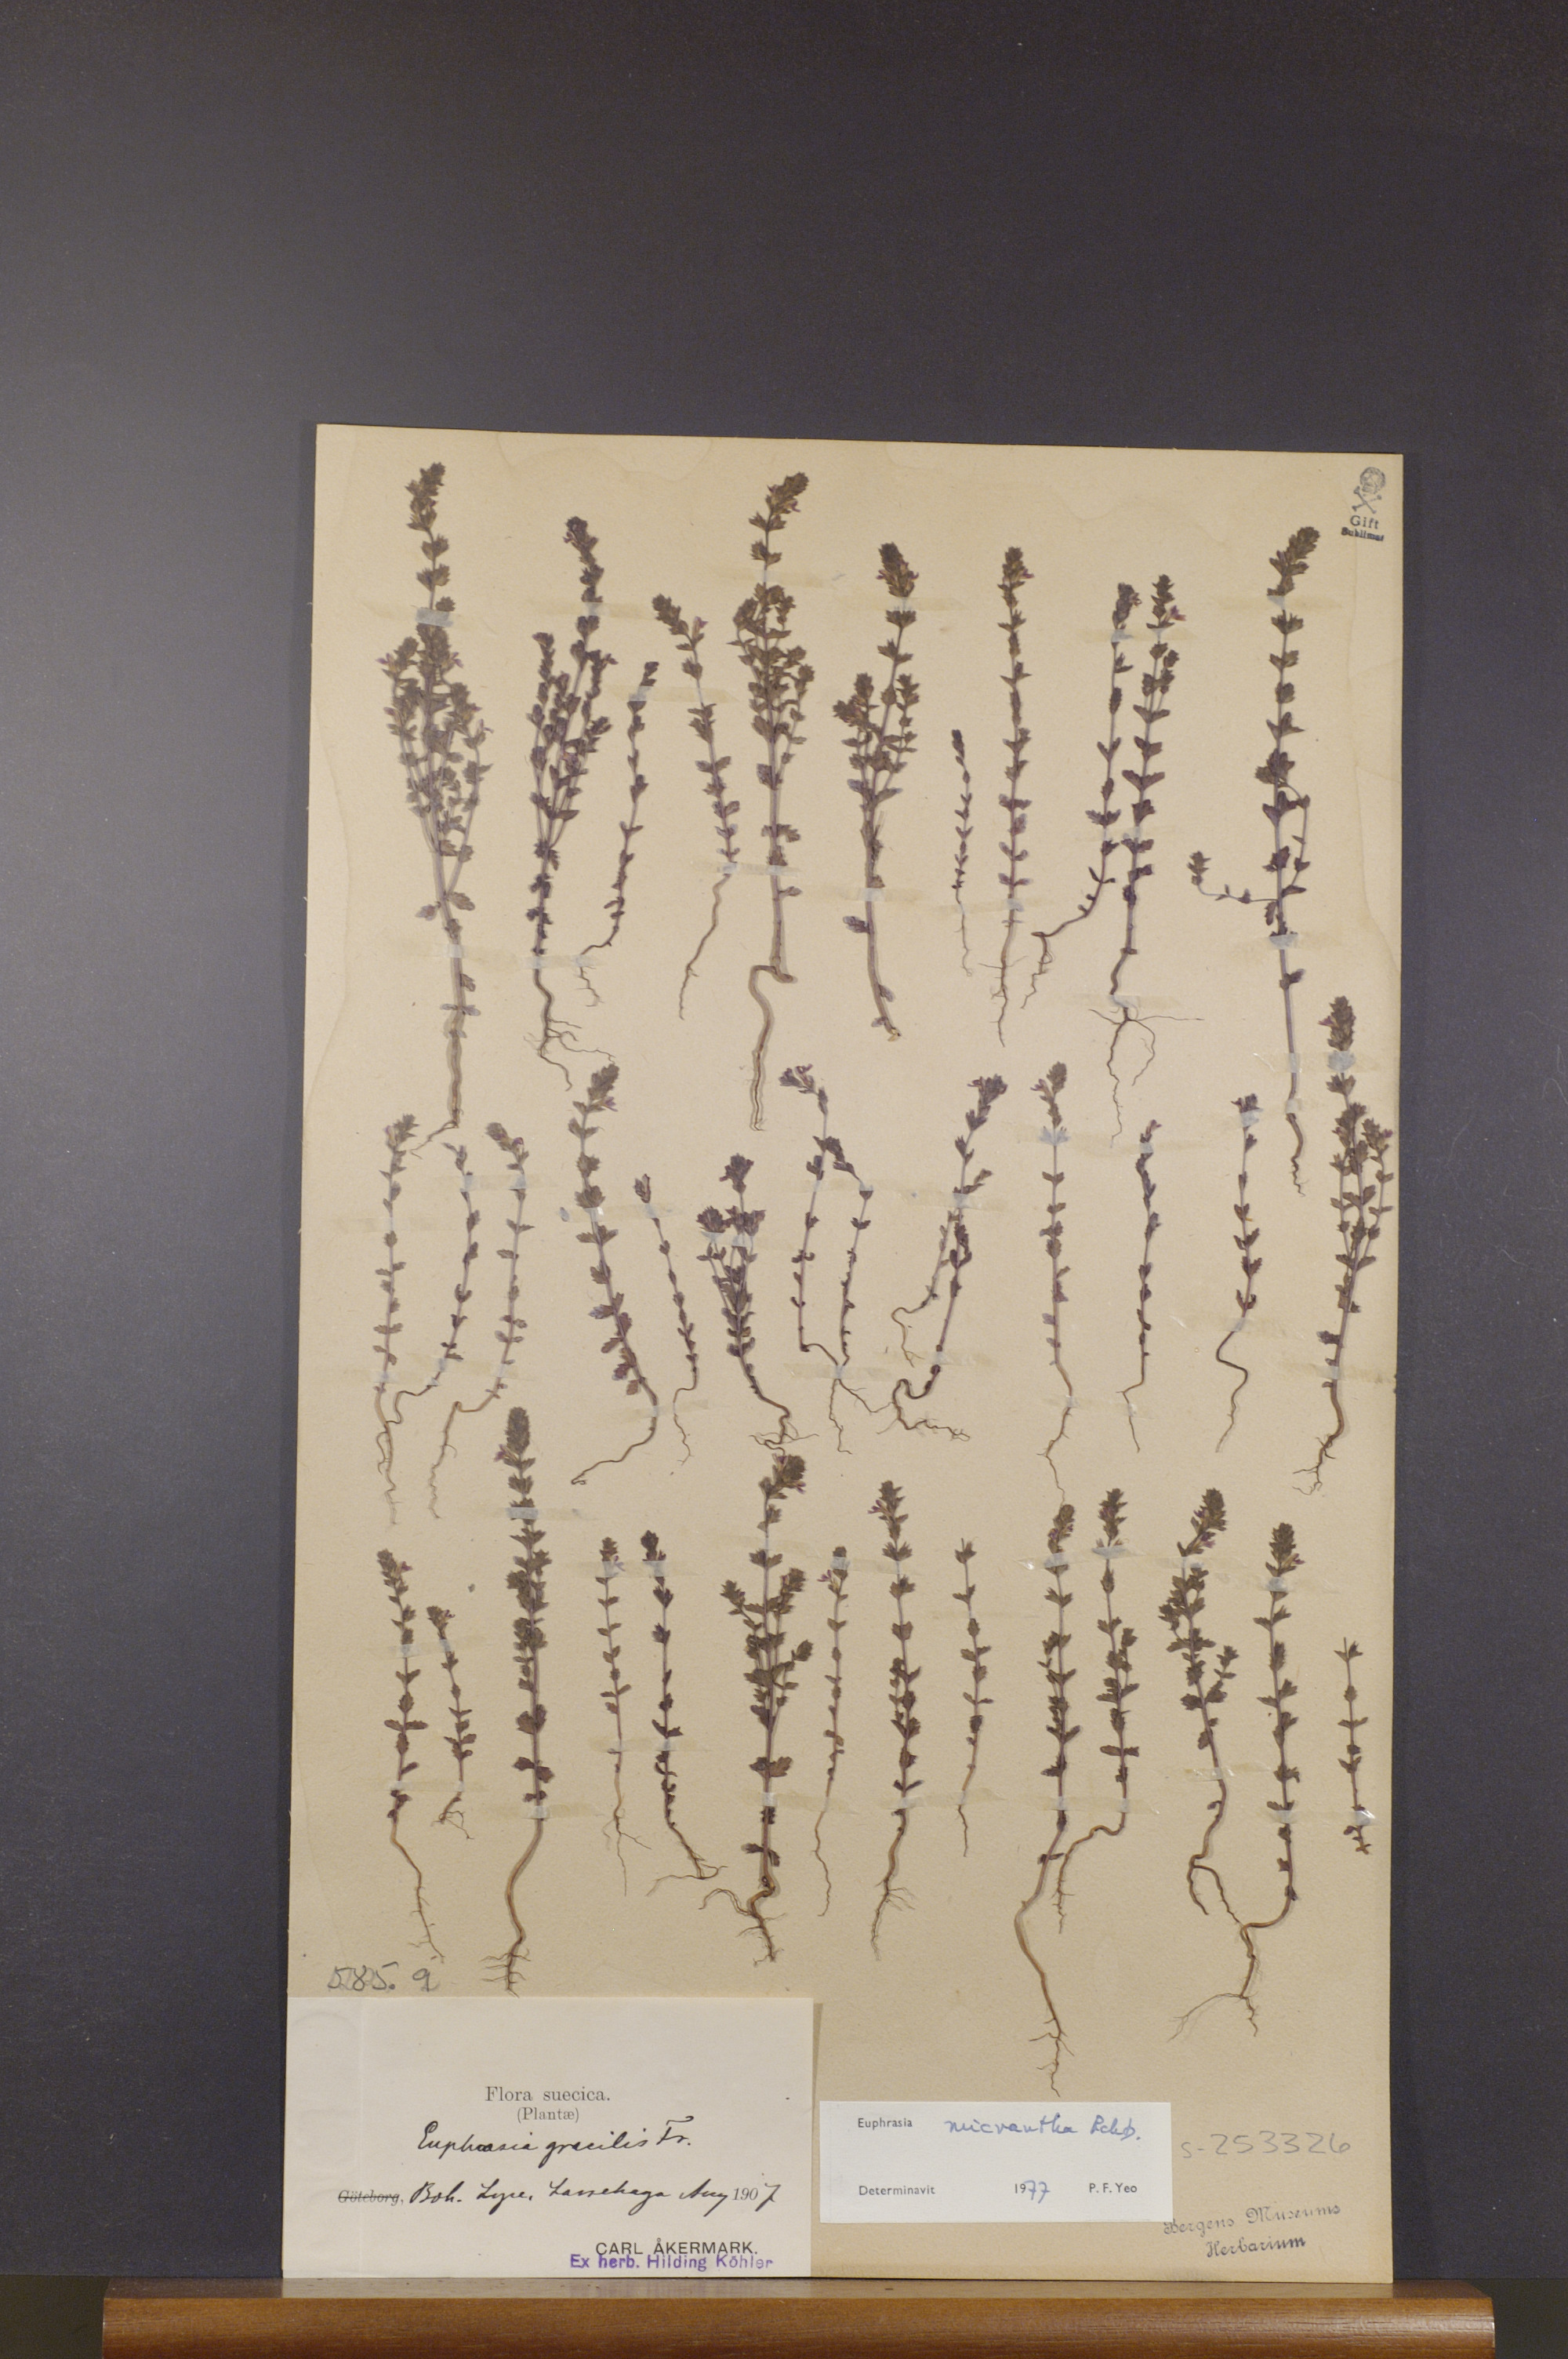 Gift
Sublimat
585. 9
Flora suecica.
(Plantæ)
Euphrasia gracilis Fr.
Göteborg, Boh. Lyre, Lassehaga Aug 1907
CARL ÅKERMARK.
Ex herb. Hilding Köhler
Euphrasia micrantha Rchb.
Determinavit 1977 P. F. Yeo
S-253326
Bergens Museums
Herbarium